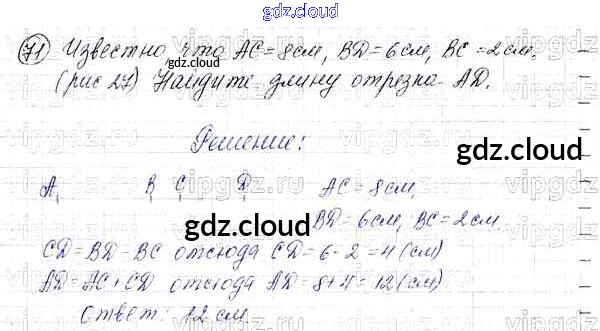 gdz.cloud
71 Известно что AC = 8см, BD = 6см, BC = 2см.
(рис 27) Найдите длину отрезка AD.
gdz.cloud
Решение:
gdz.cloud
A B C D AC = 8см,
gdz.cloud
BD = 6см, BC = 2см.
CD = BD - BC отсюда CD = 6 - 2 = 4 (см)
AD = AC + CD отсюда AD = 8 + 4 = 12 (см)
Ответ: 12 см.
gdz.cloud